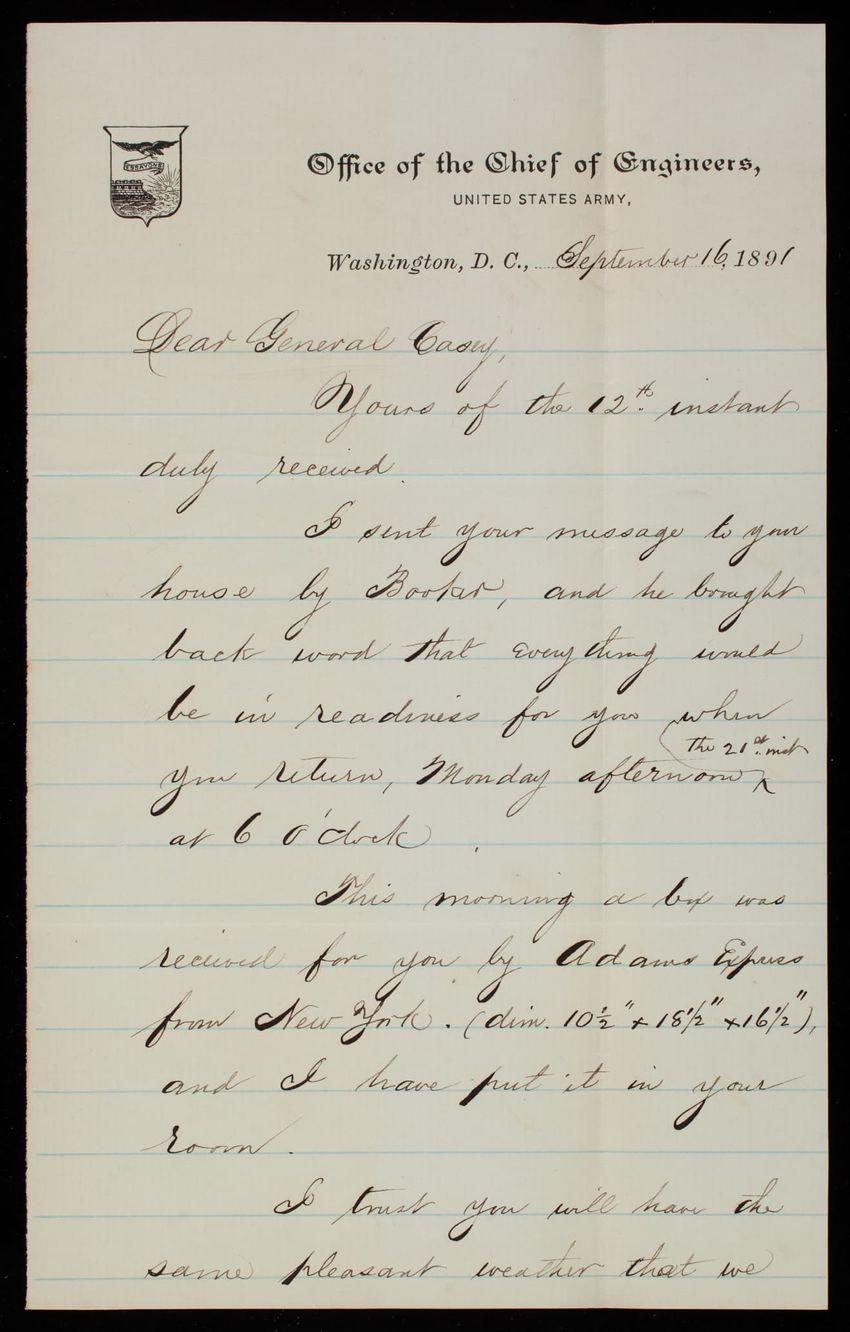 ESSAYONS
Office of the Chief of Engineers,
UNITED STATES ARMY,
Washington, D. C., September 16, 1891
Dear General Casey,
Yours of the 12th. instant
duly received.
I sent your message to your
house by Booker, and he brought
back word that everything would
be in readiness for you when
the 21st. inst
you return, Monday afternoon ^
at 6 o'clock.
This morning a box was
received for you by Adams Express
from New York. (dim. 10½" x 18½" x 16½"),
and I have put it in your
room.
I trust you will have the
same pleasant weather that we